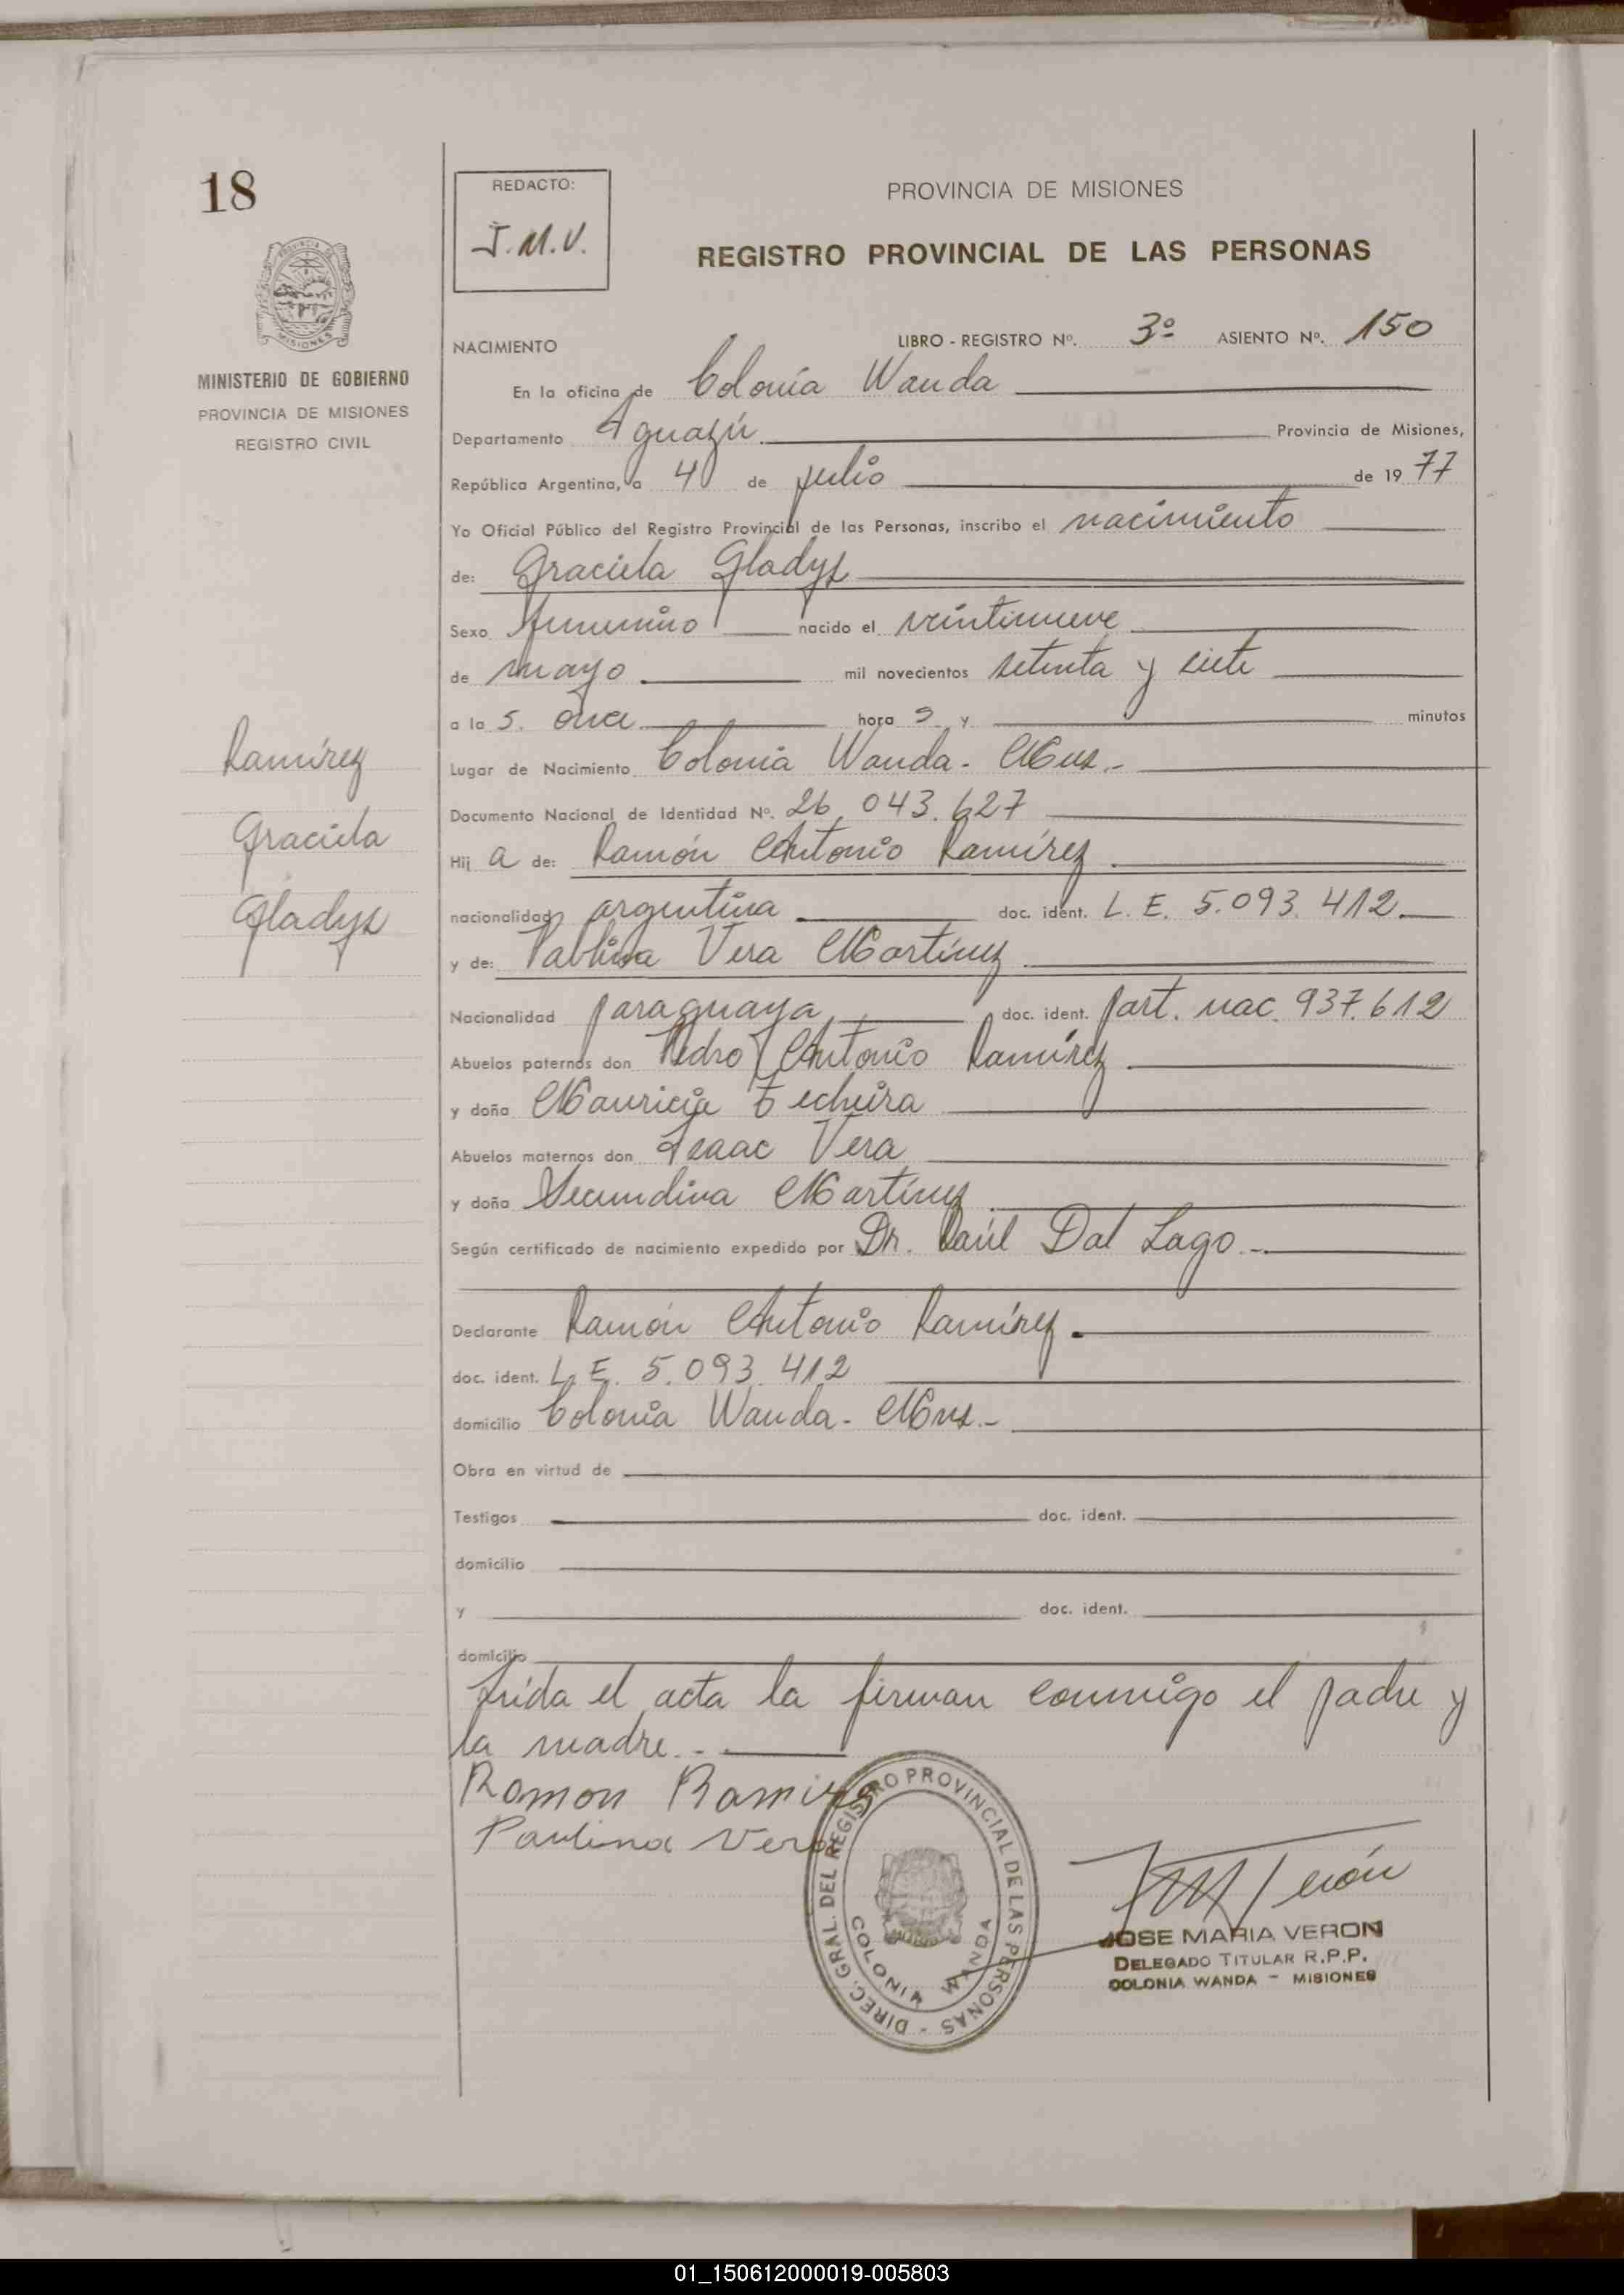 18
REDACTO:
J.M.V.
PROVINCIA DE MISIONES
REGISTRO PROVINCIAL DE LAS PERSONAS
PROVINCIA DE
MISIONES
MINISTERIO DE GOBIERNO
PROVINCIA DE MISIONES
REGISTRO CIVIL
NACIMIENTO LIBRO - REGISTRO Nº. 3º ASIENTO Nº. 150
En la oficina de Colonia Wanda
Departamento Iguazú Provincia de Misiones,
República Argentina, a 4 de julio de 19 77
Yo Oficial Público del Registro Provincial de las Personas, inscribo el nacimiento
de: Graciela Gladys
Sexo femenino nacido el veintinueve
de mayo mil novecientos setenta y siete
a la s. once hora s y minutos
Ramírez
Lugar de Nacimiento Colonia Wanda - Mnes.-
Documento Nacional de Identidad Nº. 26.043.627
Graciela
Hij a de: Ramón Antonio Ramírez
Gladys
nacionalidad argentina doc. ident. L. E. 5.093.412
y de: Vera Martínez
Nacionalidad paraguaya doc. ident. part. nac. 937.612
Abuelos paternos don Pedro Antonio Ramírez
y doña Mauricia Techeira
Abuelos maternos don Isaac Vera
y doña Secundina Martínez
Según certificado de nacimiento expedido por Dr. Raúl Dal Lago.-
Declarante Ramón Antonio Ramírez
doc. ident. L. E. 5.093.412
domicilio Colonia Wanda - Mnes.-
Obra en virtud de
Testigos doc. ident.
domicilio
y doc. ident.
domicilio
Leída el acta la firman conmigo el padre y
la madre.-
Ramon Ramires
Paulina Vera
DIREC. GRAL. DEL REGISTRO PROVINCIAL DE LAS PERSONAS -
COLONIA WANDA
JOSE MARIA VERON
DELEGADO TITULAR R.P.P.
COLONIA WANDA - MISIONES
01_150612000019-005803